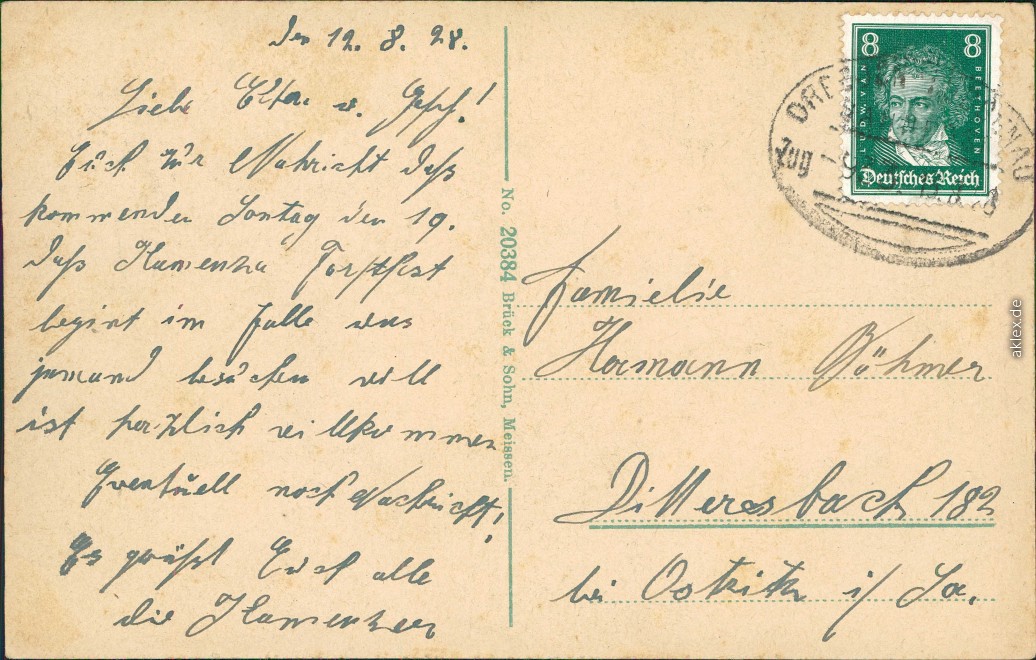 Den 12. 8. 28.
Liebe Eltern u. Gesch!
Euch zur Nahricht daß
kommenden Sontag den 19.
daß Kamenza Forstfest
begint im Falle uns
jemand besuchen will
ist herzlich willkommen
Eventuell noch Nachricht!
Es grüßt Euch alle
die Kamenzer
No. 20384 Brück & Sohn, Meissen.
8 8
LUDW. VAN BEETHOVEN
Deutsches Reich
DRESDEN
Zug
Familie
Hermann Böhmer
Dittersbach 182
bei Ostritz i/ Sa.
aklex.de